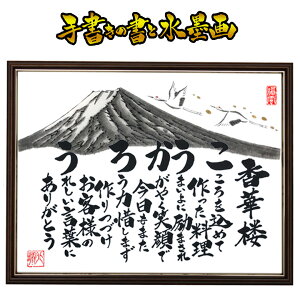 手書きの書と水墨画
香華楼
こころを込めて
作った料理
うまいよに励まされ
かがやく笑顔で
今日もまた
ろう力惜しまず
作りつづけ
お客様の
うれしい言葉に
ありがとう